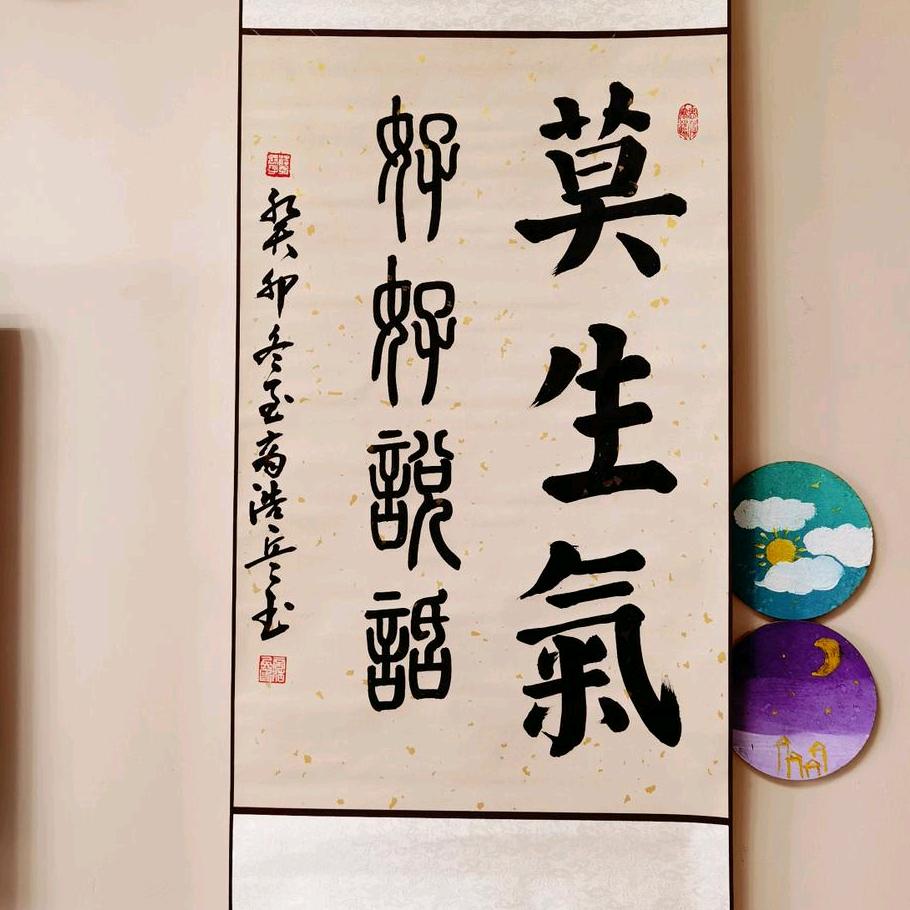 莫生氣
好好說話
癸卯冬至高浩兵书